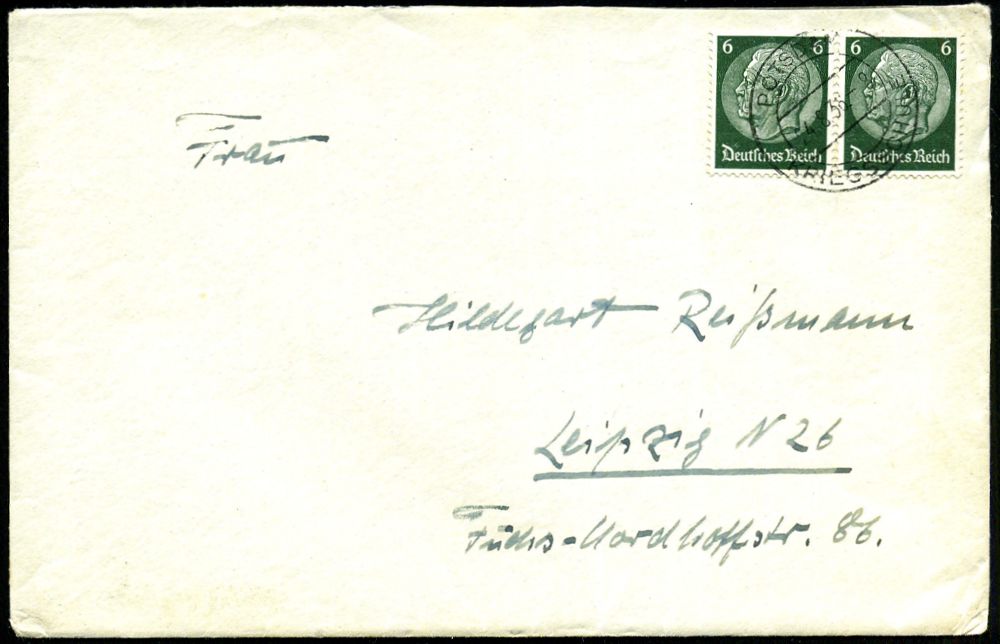 6 6 6 6
Deutsches Reich Deutsches Reich
POTSDAM
4.8.36
KRIEGSSCHULE
Frau
Hildegart Reißmann
Leipzig N 26
Fuchs-Nordhoffstr. 86.